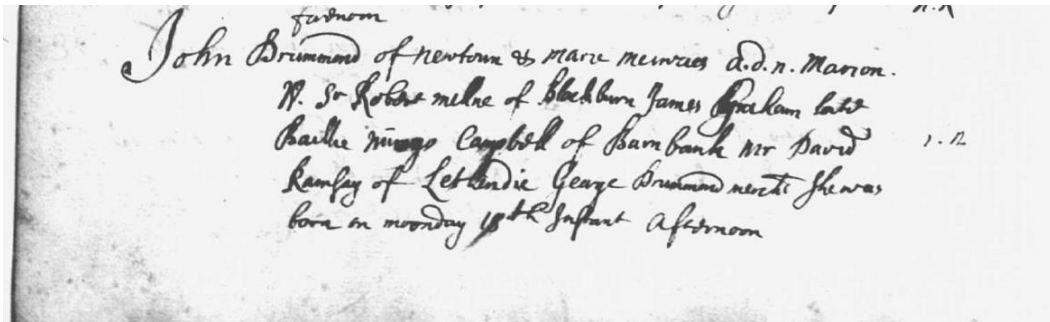 fornoon
John Drummond of newtoun & marie menzies a.d.n. Marion.
W. Sr Robert milne of blackburn James Graham late
Baillie mungo Campbell of Burnbank mr David 1. R
Ramsay of Lethendie George Drummond mercht She was
born on moonday 18th Instant afternoon